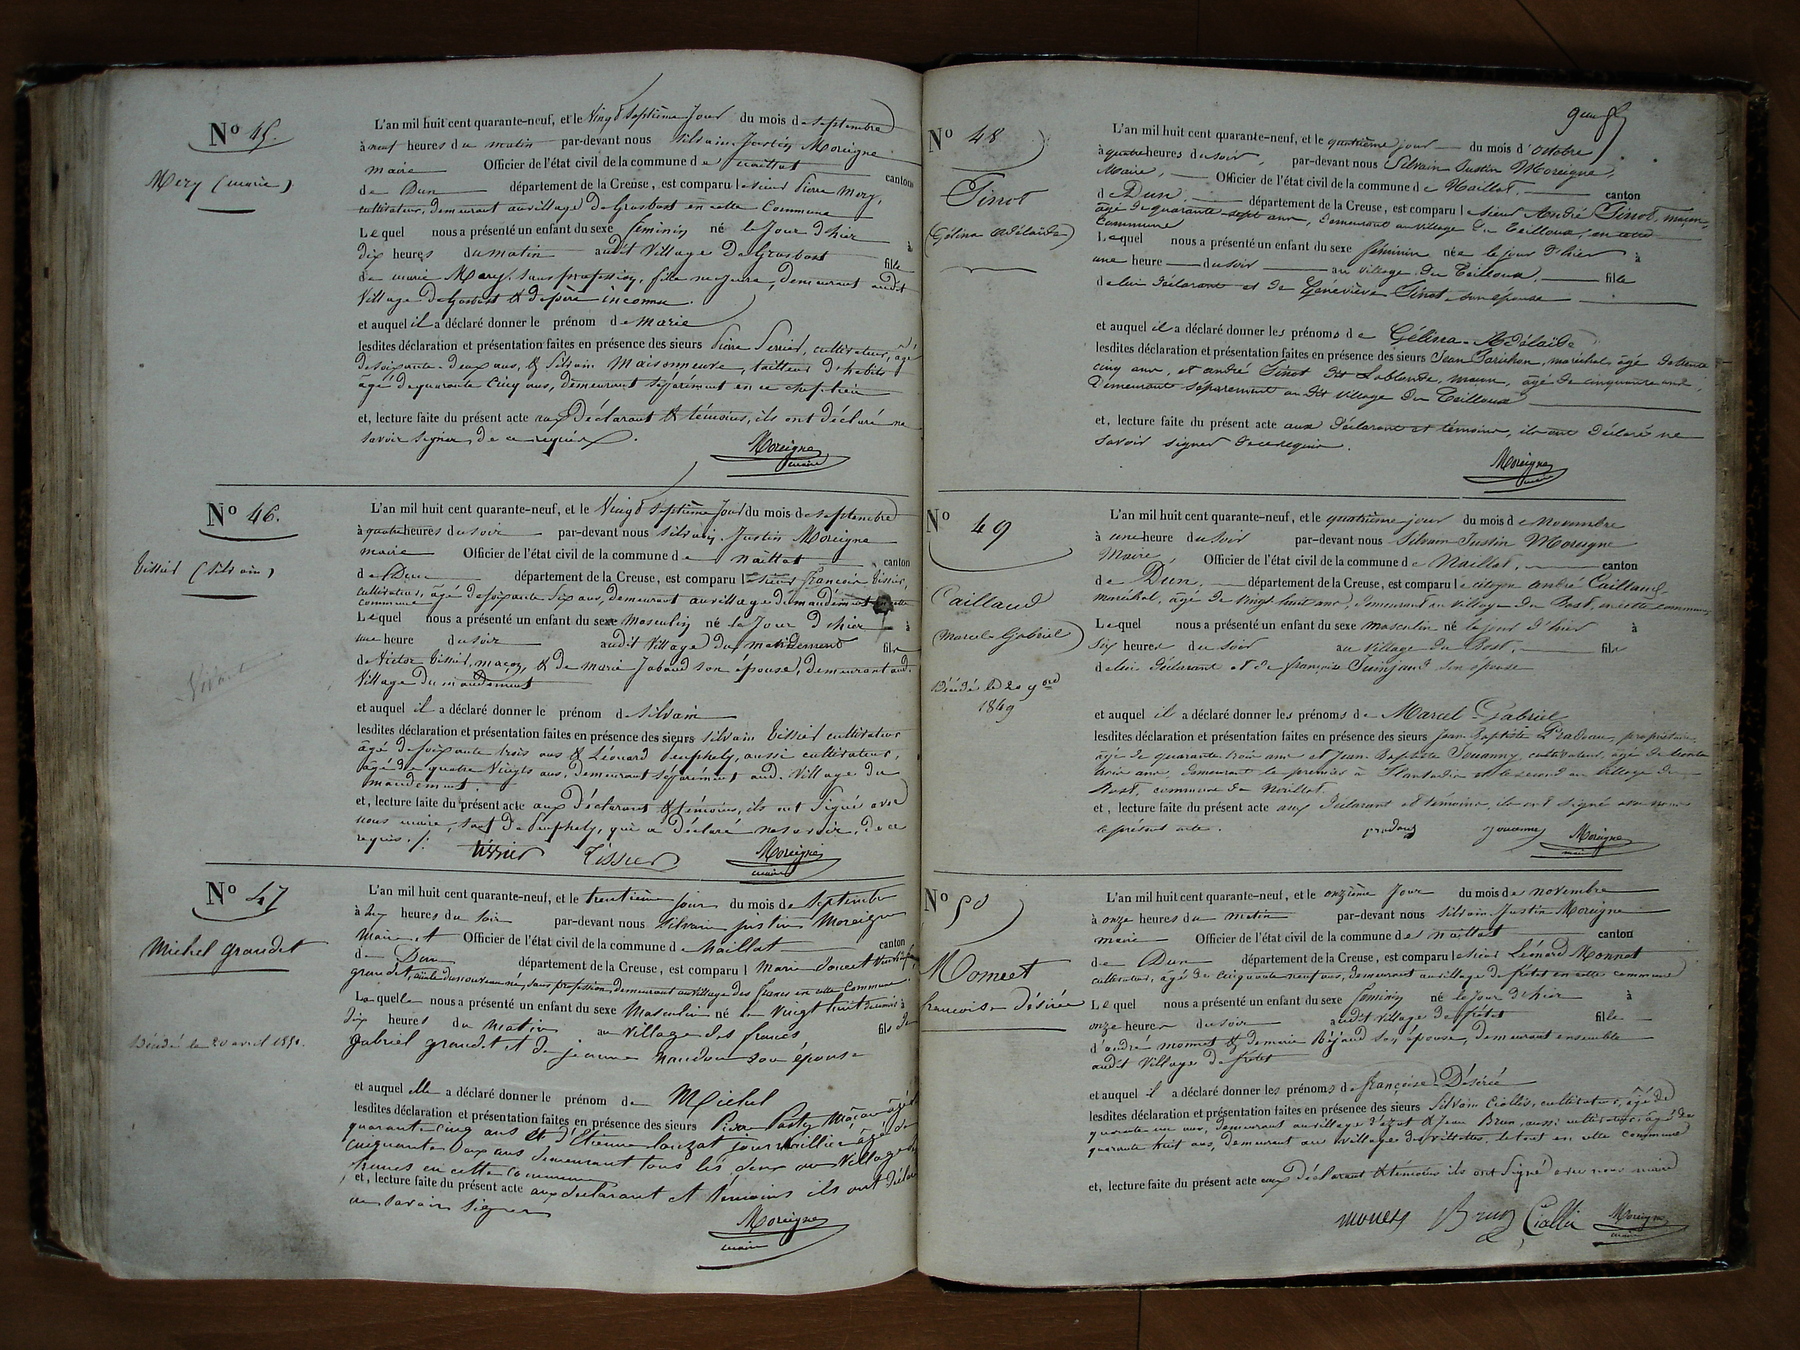 No 45.
Mery (marie)
L'an mil huit cent quarante-neuf, et le Vingt Septième Jour du mois de Septembre
à neuf heures du matin par-devant nous Silvain Justin Moreigne
maire Officier de l'état civil de la commune de naillat canton
de Dun département de la Creuse, est comparu le sieur Pierre Mery,
cultivateur, demeurant au village de Grosbost en cette Commune
Lequel nous a présenté un enfant du sexe féminin né le Jour d'hier à
dix heures du matin audit Village de Grosbost fille
de marie Mery, sans profession, fille majeure, demeurant audit
Village de Grosbost & de père inconnu.
et auquel il a déclaré donner le prénom de marie
lesdites déclaration et présentation faites en présence des sieurs Pierre , cultivateur, âgé
de soixante-deux ans, & Silvain Maisonneuve, tailleur d'habits
âgé de quarante Cinq ans, demeurant séparément en ce chef-lieu
et, lecture faite du présent acte aux Déclarant & témoins, ils ont déclaré ne
savoir signer, de ce requis.
Moreigne
maire
No 46.
Tissier (Silvain)
L'an mil huit cent quarante-neuf, et le Vingt Septième Jour du mois de Septembre
à quatre heures du soir par-devant nous Silvain Justin Moreigne
maire Officier de l'état civil de la commune de naillat canton
de Dun département de la Creuse, est comparu le sieur françois Tissier,
cultivateur, âgé de soixante Six ans, demeurant au village du mandement en cette
commune
Lequel nous a présenté un enfant du sexe masculin né le Jour d'hier à
une heure du soir audit Village du mandement fils
de Victor Tissier, maçon, & de marie Jabaud son épouse, demeurant aud.
Village du mandement
et auquel il a déclaré donner le prénom de Silvain
lesdites déclaration et présentation faites en présence des sieurs Silvain Tissier cultivateur
âgé de soixante trois ans & Léonard Peuphely, aussi cultivateur,
âgé de quatre Vingts ans, demeurant séparément aud. Village du
mandement.
et, lecture faite du présent acte aux Déclarant & témoins, ils ont signé avec
nous maire, sauf de Peuphely, qui a déclaré ne savoir, de ce
requis./.
tissier Tissier Moreigne
maire
No 47
Michel grandet
Décédé le 20 avril 1850.
L'an mil huit cent quarante-neuf, et le trentième jour du mois de Septembre
à heures du soir par-devant nous Silvain justin Moreigne
maire Officier de l'état civil de la commune de Naillat canton
de Dun département de la Creuse, est comparu Marie doucet
grandet, du nouveau né, sans profession, demeurant au village des francs en cette Commune
Laquelle nous a présenté un enfant du sexe Masculin né le Vingt huit courant à
dix heures du Matin au Village des francs fils de
gabriel grandet et de jeanne Nandon son épouse
et auquel elle a déclaré donner le prénom de Michel
lesdites déclaration et présentation faites en présence des sieurs Pierre Pasty Maçon âgé de
quarante cinq ans et d'Etienne lanzat journaillier âgé de
cinquante Deux ans demeurant tous les deux au Village des
francs en cette Commune
et, lecture faite du présent acte aux déclarant et témoins ils ont déclaré
ne savoir signer
Moreigne
maire
No 48
Pinot
(Gélina Adélaïde)
L'an mil huit cent quarante-neuf, et le quatrième jour du mois d'octobre
à quatre heures du soir, par-devant nous Silvain Justin Moreigne,
Maire, Officier de l'état civil de la commune de Naillat. canton
de Dun. département de la Creuse, est comparu le sieur André Pinot, maçon,
âgé de quarante-sept ans, demeurant au village du Teilloux, en cette
Commune
Lequel nous a présenté un enfant du sexe féminin née le jour d'hier à
une heure du soir au village du Teilloux, fille
de lui déclarant et de Géneviève Pinot son épouse
et auquel il a déclaré donner les prénoms de Gélina-Adélaïde
lesdites déclaration et présentation faites en présence des sieurs Jean Parichon, maréchal, âgé de trente
cinq ans, et andré Pinot dit Lablonde, maçon, âgé de cinquante ans,
demeurants séparément au dit village du Teilloux
et, lecture faite du présent acte aux déclarant et témoins, ils ont déclaré ne
savoir signer de ce requis.
Moreigne
maire
No 49
Caillaud
(Marcel Gabriel)
Décédé le 20 9bre
1849
L'an mil huit cent quarante-neuf, et le quatrième jour du mois de Novembre
à une heure du soir par-devant nous Silvain Justin Moreigne
Maire, Officier de l'état civil de la commune de Naillat, canton
de Dun, département de la Creuse, est comparu le citoyen André Caillaud,
maréchal, âgé de vingt huit ans, demeurant au village du Post, en cette commune
Lequel nous a présenté un enfant du sexe masculin né le jour d'hier à
Six heures du soir au village du Post, fils
de lui déclarant et de françoise Juinjaud son épouse
et auquel il a déclaré donner les prénoms de Marcel-Gabriel
lesdites déclaration et présentation faites en présence des sieurs Jean Baptiste Pradeaux, propriétaire
âgé de quarante trois ans et Jean Baptiste Jouanny, cultivateur, âgé de trente
trois ans, demeurant le premier à et le second au village du
Post, commune de Naillat.
et, lecture faite du présent acte aux déclarant et témoins, ils ont signé avec nous
le présent acte. pradaux jouanny Moreigne
maire
No 50
Monnet
françoise désirée
L'an mil huit cent quarante-neuf, et le onzième Jour du mois de novembre
à onze heures du matin par-devant nous Silvain Justin Moreigne
maire Officier de l'état civil de la commune de naillat canton
de Dun département de la Creuse, est comparu le sieur Léonard Monnet
cultivateur, âgé de cinquante neuf ans, demeurant au village de fretet en cette commune
Lequel nous a présenté un enfant du sexe féminin né le Jour d'hier à
onze heures du soir audit village de fretet fille
d'andré monnet & de marie Béjaud son épouse, demeurant ensemble
audit Village de fretet
et auquel il a déclaré donner les prénoms de françoise-Désirée
lesdites déclaration et présentation faites en présence des sieurs Silvain Ciallis, cultivateur, âgé de
quarante un ans, demeurant au village & Jean Brun, aussi cultivateur, âgé de
quarante huit ans, demeurant au village des Villettes, le tout en cette commune
et, lecture faite du présent acte aux Déclarant & témoins ils ont signé avec nous maire
monett Brun Cialli Moreigne
maire